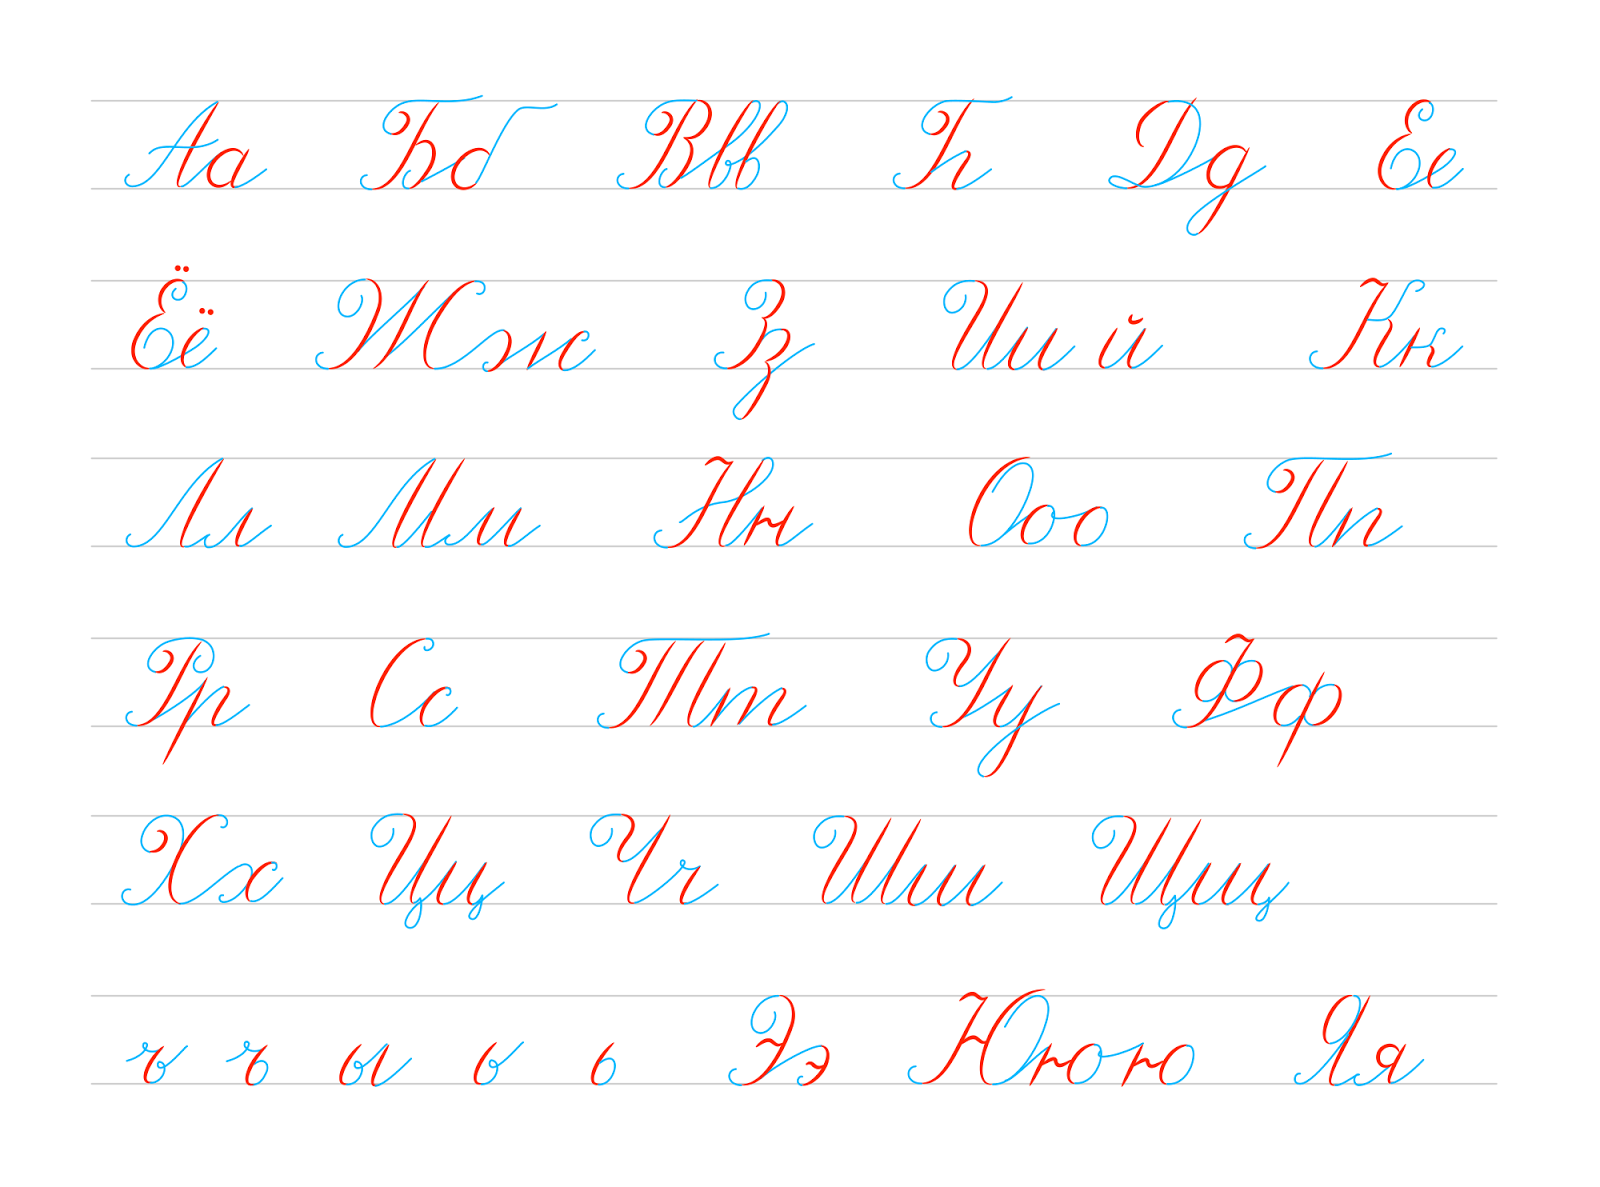 Аа Бб Ввв Гг Дд Ее
Ёё Жж Зз Ии й Кк
Лл Мм Нн Ооо Пп
Рр Сс Тт Уу Фф
Хх Цц Чч Шш Щщ
ъ ъ ы ь ь Ээ Ююю Яя